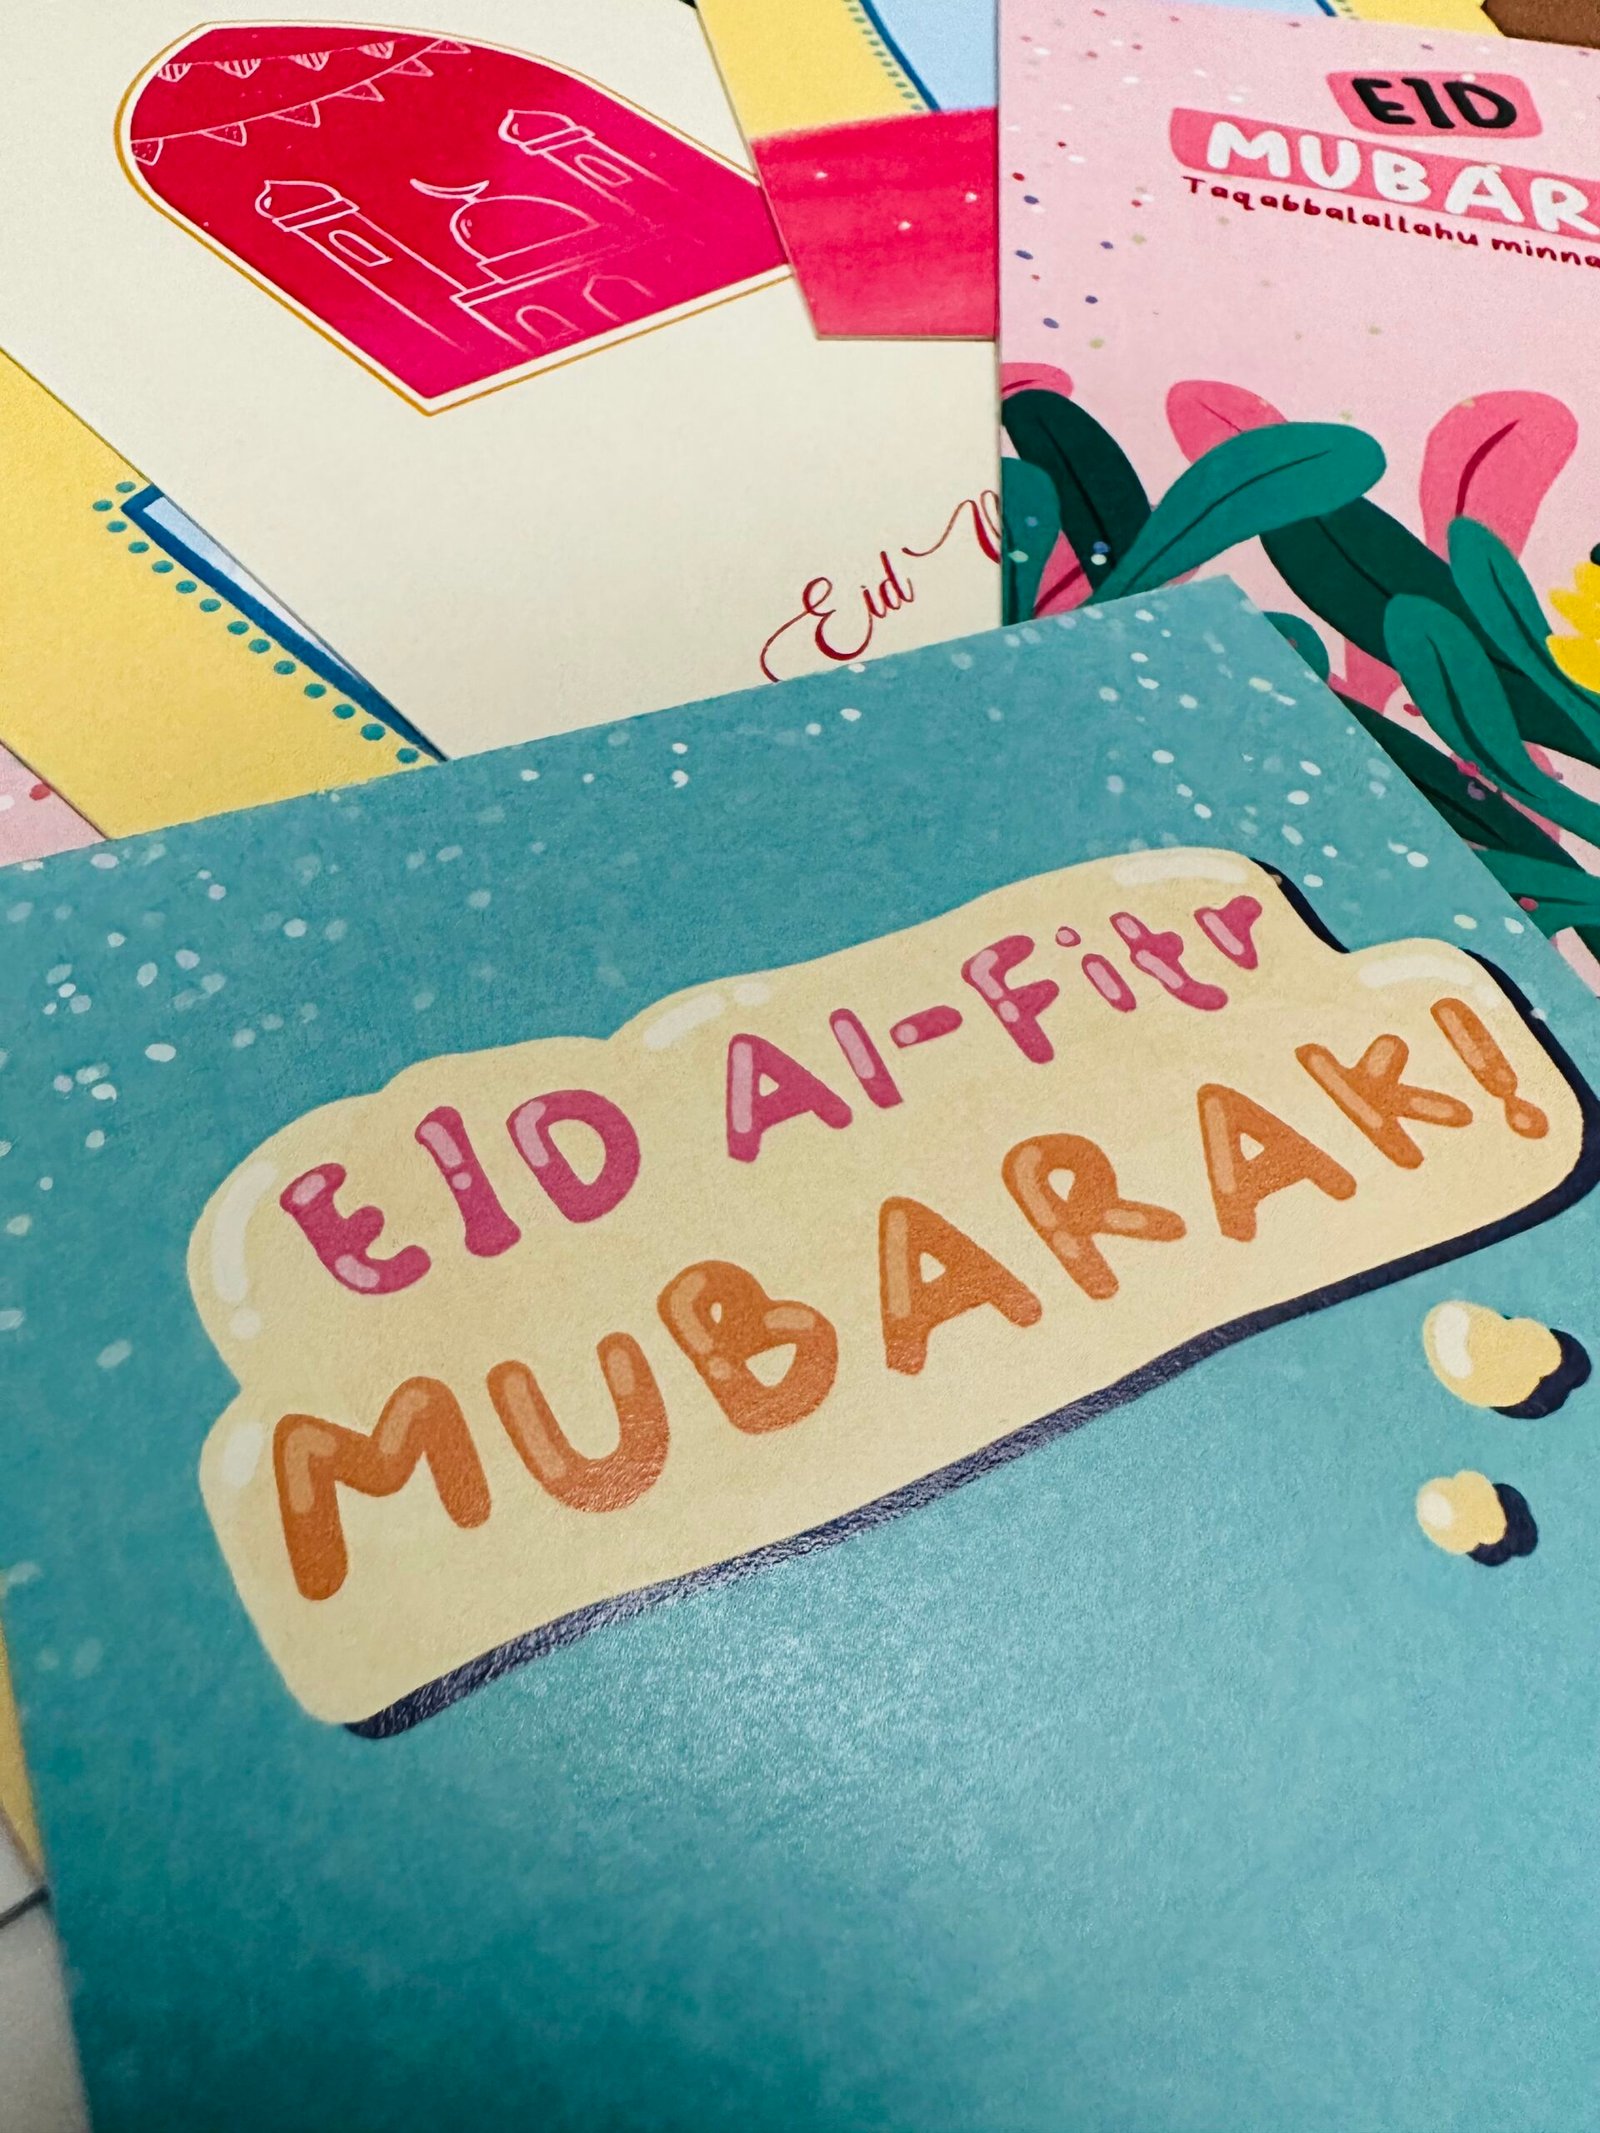 EID
MUBAR
Taqabbalallahu minna
Eid
EID Al-Fitr
MUBARAK!